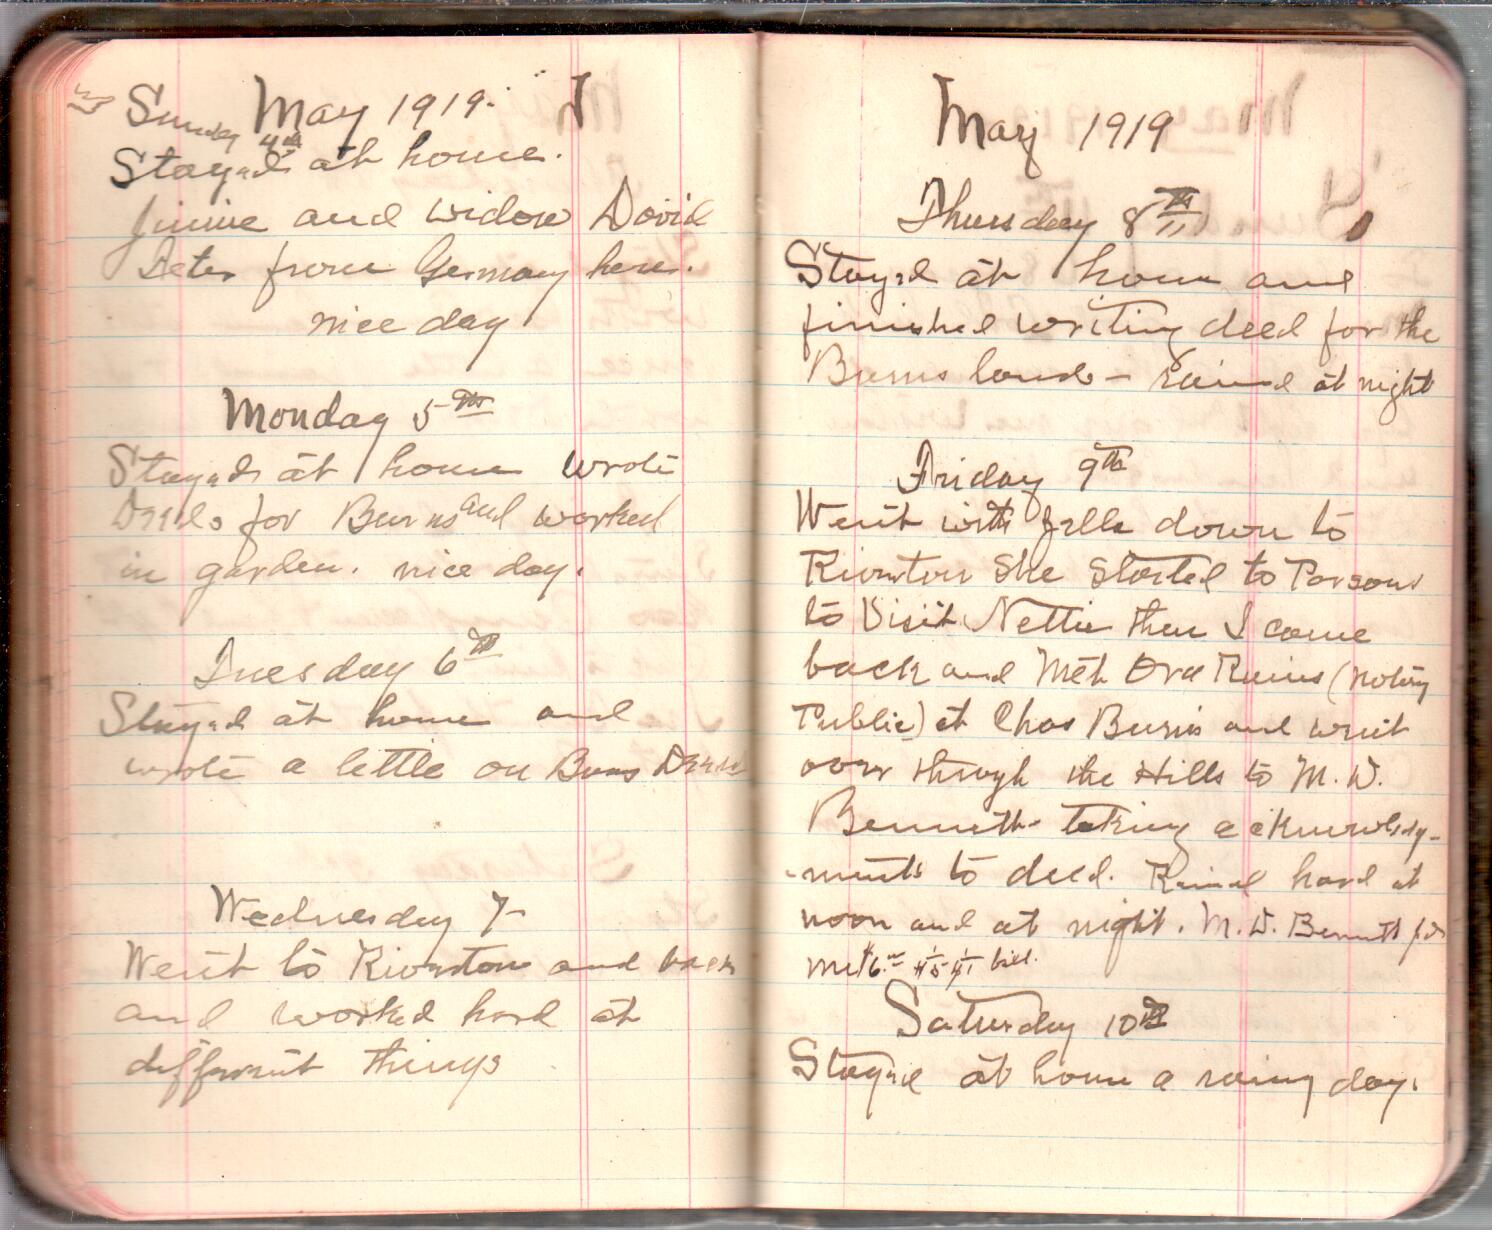 May 1919.
Sunday 4th
Stayed at home.
Jinnie and widow David
Peter from Germany here.
nice day
Monday 5th
Stayed at home wrote
Deeds for Burns and worked
in garden. nice day.
Tuesday 6th
Stayed at home and
wrote a little on Burns Deed
Wednesday 7-
Went to Riverton and back
and worked hard at
different things
May 1919
Thursday 8th
Stayed at home and
finished writing deed for the
Burns land - rained at night
Friday 9th
Went with down to
Riverton She Started to Parsons
to Visit Nettie then I come
back and Met Ora Rains (notary
Public) at Chas Burns and went
over through the Hills to M. W.
Bennetts taking acknowledg-
-ments to deed. Rained hard at
noon and at night. M. W. Bennett pd
me $6.00 bill.
Saturday 10th
Stayed at home a rainy day.